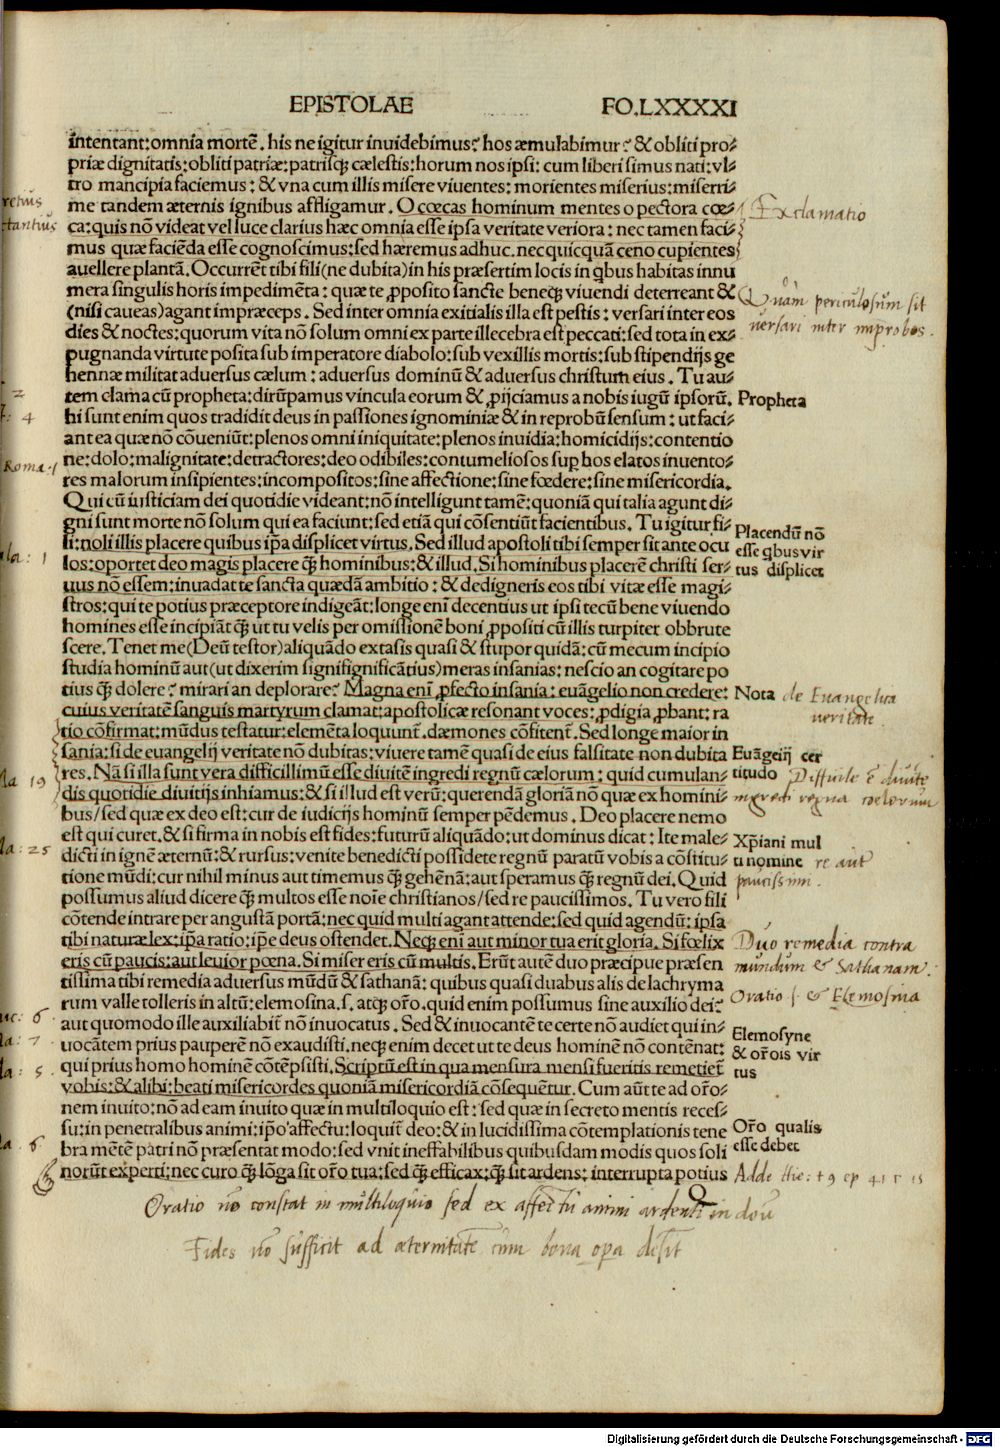 EPISTOLAE FO.LXXXXI
intentant:omnia mortē. his ne igitur inuidebimus? hos æmulabimur? & obliti pro⸗
priæ dignitatis:obliti patriæ:patrisq̃ cælestis:horum nos ipsi: cum liberi simus nati:vl⸗
tro mancipia faciemus: & vna cum illis misere viuentes: morientes miserius:miserri⸗
me tandem æternis ignibus affligamur. O cœcas hominum mentes o pectora cœ⸗
Exclamatio
ca:quis nō videat vel luce clarius hæc omnia esse ipsa veritate veriora: nec tamen faci⸗
mus quæ faciēda esse cognoscimus:sed hæremus adhuc.nec quicquā ceno cupientes
auellere plantā. Occurrēt tibi fili(ne dubita)in his præsertim locis in qbus habitas innu
mera singulis horis impedimēta: quæ te ꝓposito sancte beneq̃ viuendi deterreant &
(nisi caueas)agant impræceps. Sed inter omnia exitialis illa est pestis: versari inter eos
Quàm periculosum sit
versari inter improbos.
dies & noctes:quorum vita nō solum omni ex parte illecebra est peccati:sed tota in ex⸗
pugnanda virtute posita sub imperatore diabolo:sub vexillis mortis:sub stipendijs ge
hennæ militat aduersus cælum: aduersus dominū & aduersus christum eius. Tu au⸗
tem clama cū propheta:dirūpamus vincula eorum & ꝓijciamus a nobis iugū ipsorū.
Propheta
hi sunt enim quos tradidit deus in passiones ignominiæ & in reprobū sensum: ut faci⸗
ant ea quæ nō cōueniūt:plenos omni iniquitate:plenos inuidia:homicidijs:contentio
ne:dolo:malignitate:detractores:deo odibiles:contumeliosos suꝑ hos elatos inuento⸗
Roma.1
res malorum insipientes:incompositos:sine affectione:sine fœdere:sine misericordia.
Qui cū iusticiam dei quotidie videant:nō intelligunt tamē:quoniā qui talia agunt di⸗
gni sunt morte nō solum qui ea faciunt:sed etiā qui cōsentiūt facientibus. Tu igitur fi⸗
li:noli illis placere quibus ip̄a displicet virtus. Sed illud apostoli tibi semper sit ante ocu
Placendū nō
esse qbus vir
tus displicet
los:oportet deo magis placere q̃ hominibus:& illud. Si hominibus placerē christi ser⸗
uus nō essem:inuadat te sancta quædā ambitio: & dedigneris eos tibi vitæ esse magi⸗
stros:qui te potius præceptore indigeāt:longe enī decentius ut ipsi tecū bene viuendo
homines esse incipiāt q̃ ut tu velis per omissionē boni ꝓpositi cū illis turpiter obbrute
scere. Tenet me(Deū testor)aliquādo extasis quasi & stupor quidā:cū mecum incipio
studia hominū aut(ut dixerim signifignificātius)meras insanias: nescio an cogitare po
tius q̃ dolere? mirari an deplorare? Magna enī ꝓfecto insania: euāgelio non credere:
Nota de Euangelica
veritate.
cuius veritatē sanguis martyrum clamat:apostolicæ resonant voces: ꝓdigia ꝓbant: ra
tio cōfirmat:mūdus testatur:elemēta loquunt̃.dæmones cōfitent̃. Sed longe maior in
sania:si de euangelij veritate nō dubitas:viuere tamē quasi de eius falsitate non dubita
Euāgeiij cer
titudo
res. Nā si illa sunt vera difficillimū esse diuitē ingredi regnū cælorum: quid cumulan⸗
Difficile ē diuite
ingredi regna coelorum
19
dis quotidie diuitijs inhiamus:& si illud est verū:querendā gloriā nō quæ ex homini⸗
bus/sed quæ ex deo est:cur de iudicijs hominū semper pēdemus. Deo placere nemo
est qui curet.& si firma in nobis est fides:futurū aliquādo:ut dominus dicat: Ite male⸗
Xp̄iani mul
ti nomine re aut
paucissimi.
25
dicti in ignē æternū:& rursus:venite benedicti possidete regnū paratū vobis a cōstitu⸗
tione mūdi:cur nihil minus aut timemus q̃ gehēnā:aut speramus q̃ regnū dei. Quid
possumus aliud dicere q̃ multos esse noīe christianos/sed re paucissimos. Tu vero fili
cōtende intrare per angustā portā:nec quid multi agant attende:sed quid agendū: ipsa
tibi naturæ lex:ip̄a ratio:ip̄e deus ostendet. Neq̃ enī aut minor tua erit gloria. Si fœlix
Duo remedia contra
mundum & Sathanam.
Oratio s. & Elemosina
eris cū paucis:aut leuior pœna. Si miser eris cū multis. Erūt autē duo præcipue præsen
tissima tibi remedia aduersus mūdū & sathanā: quibus quasi duabus alis de lachryma
rum valle tolleris in altū:elemosina.s. atq̃ or̄o. quid enim possumus sine auxilio dei?
6
aut quomodo ille auxiliabit̃ nō inuocatus. Sed & inuocantē te certe nō audiet qui in⸗
Elemosyne
& or̄ois vir
tus
uocātem prius pauperē nō exaudisti.neq̃ enim decet ut te deus hominē nō contēnat:
qui prius homo hominē cōtēpsisti. Scriptū est in qua mensura mensi fueritis remetiet̃
5.
vobis:& alibi:beati misericordes quoniā misericordiā cōsequētur. Cum aūt te ad or̄o⸗
nem inuito:nō ad eam inuito quæ in multiloquio est: sed quæ in secreto mentis reces⸗
su:in penetralibus animi:ip̄o affectu:loquit̃ deo:& in lucidissima cōtemplationis tene
Or̄o qualis
esse debet
6
bra mētē patri nō præsentat modo:sed vnit ineffabilibus quibusdam modis quos soli
norūt experti:nec curo q̃ lōga sit or̄o tua:sed q̃ efficax:q̃ sit ardens: interrupta potius
Oratio nō constat in multiloquio sed ex affectu animi ardenti in deū
Fides nō sufficit ad æternitatē cum bona opa desit
Digitalisierung gefördert durch die Deutsche Forschungsgemeinschaft - DFG